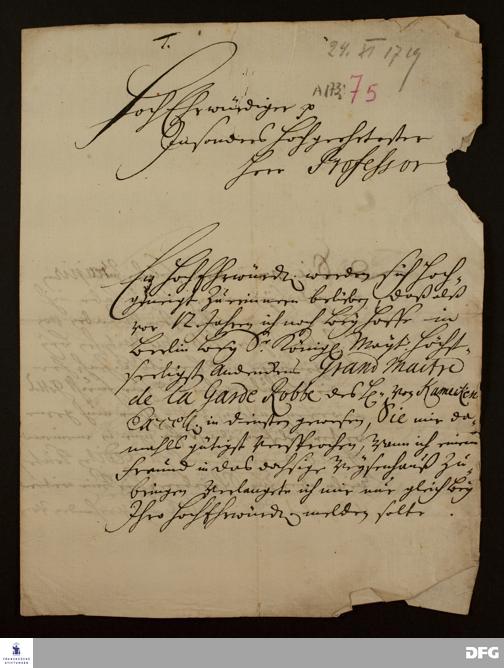 T.
24. XI 1719
A 173: 75
Hoch Ehrwürdiger p
Insonders Hochgeehrtester
Herr Professor
Ew HochEhrwürd: werden sich hoch-
geneigt zu erinnern belieben, daß als
vor 12 Jahren ich noch bey Hoffe in
Berlin bey Sr Königl Mayt höchst-
seeligst Andenckens Grand Maitre
de la Garde Robbe des H. von Kamecken
Excell: in diensten gewesen, Sie mir da-
mahls gütigst versprochen, wann ich einen
freund in das dasige Weysenhauß zu
bringen verlangete ich mir nur gleich bey
Ihro HochEhrwürd: melden solte
FRANCKESCHE
STIFTUNGEN
DFG